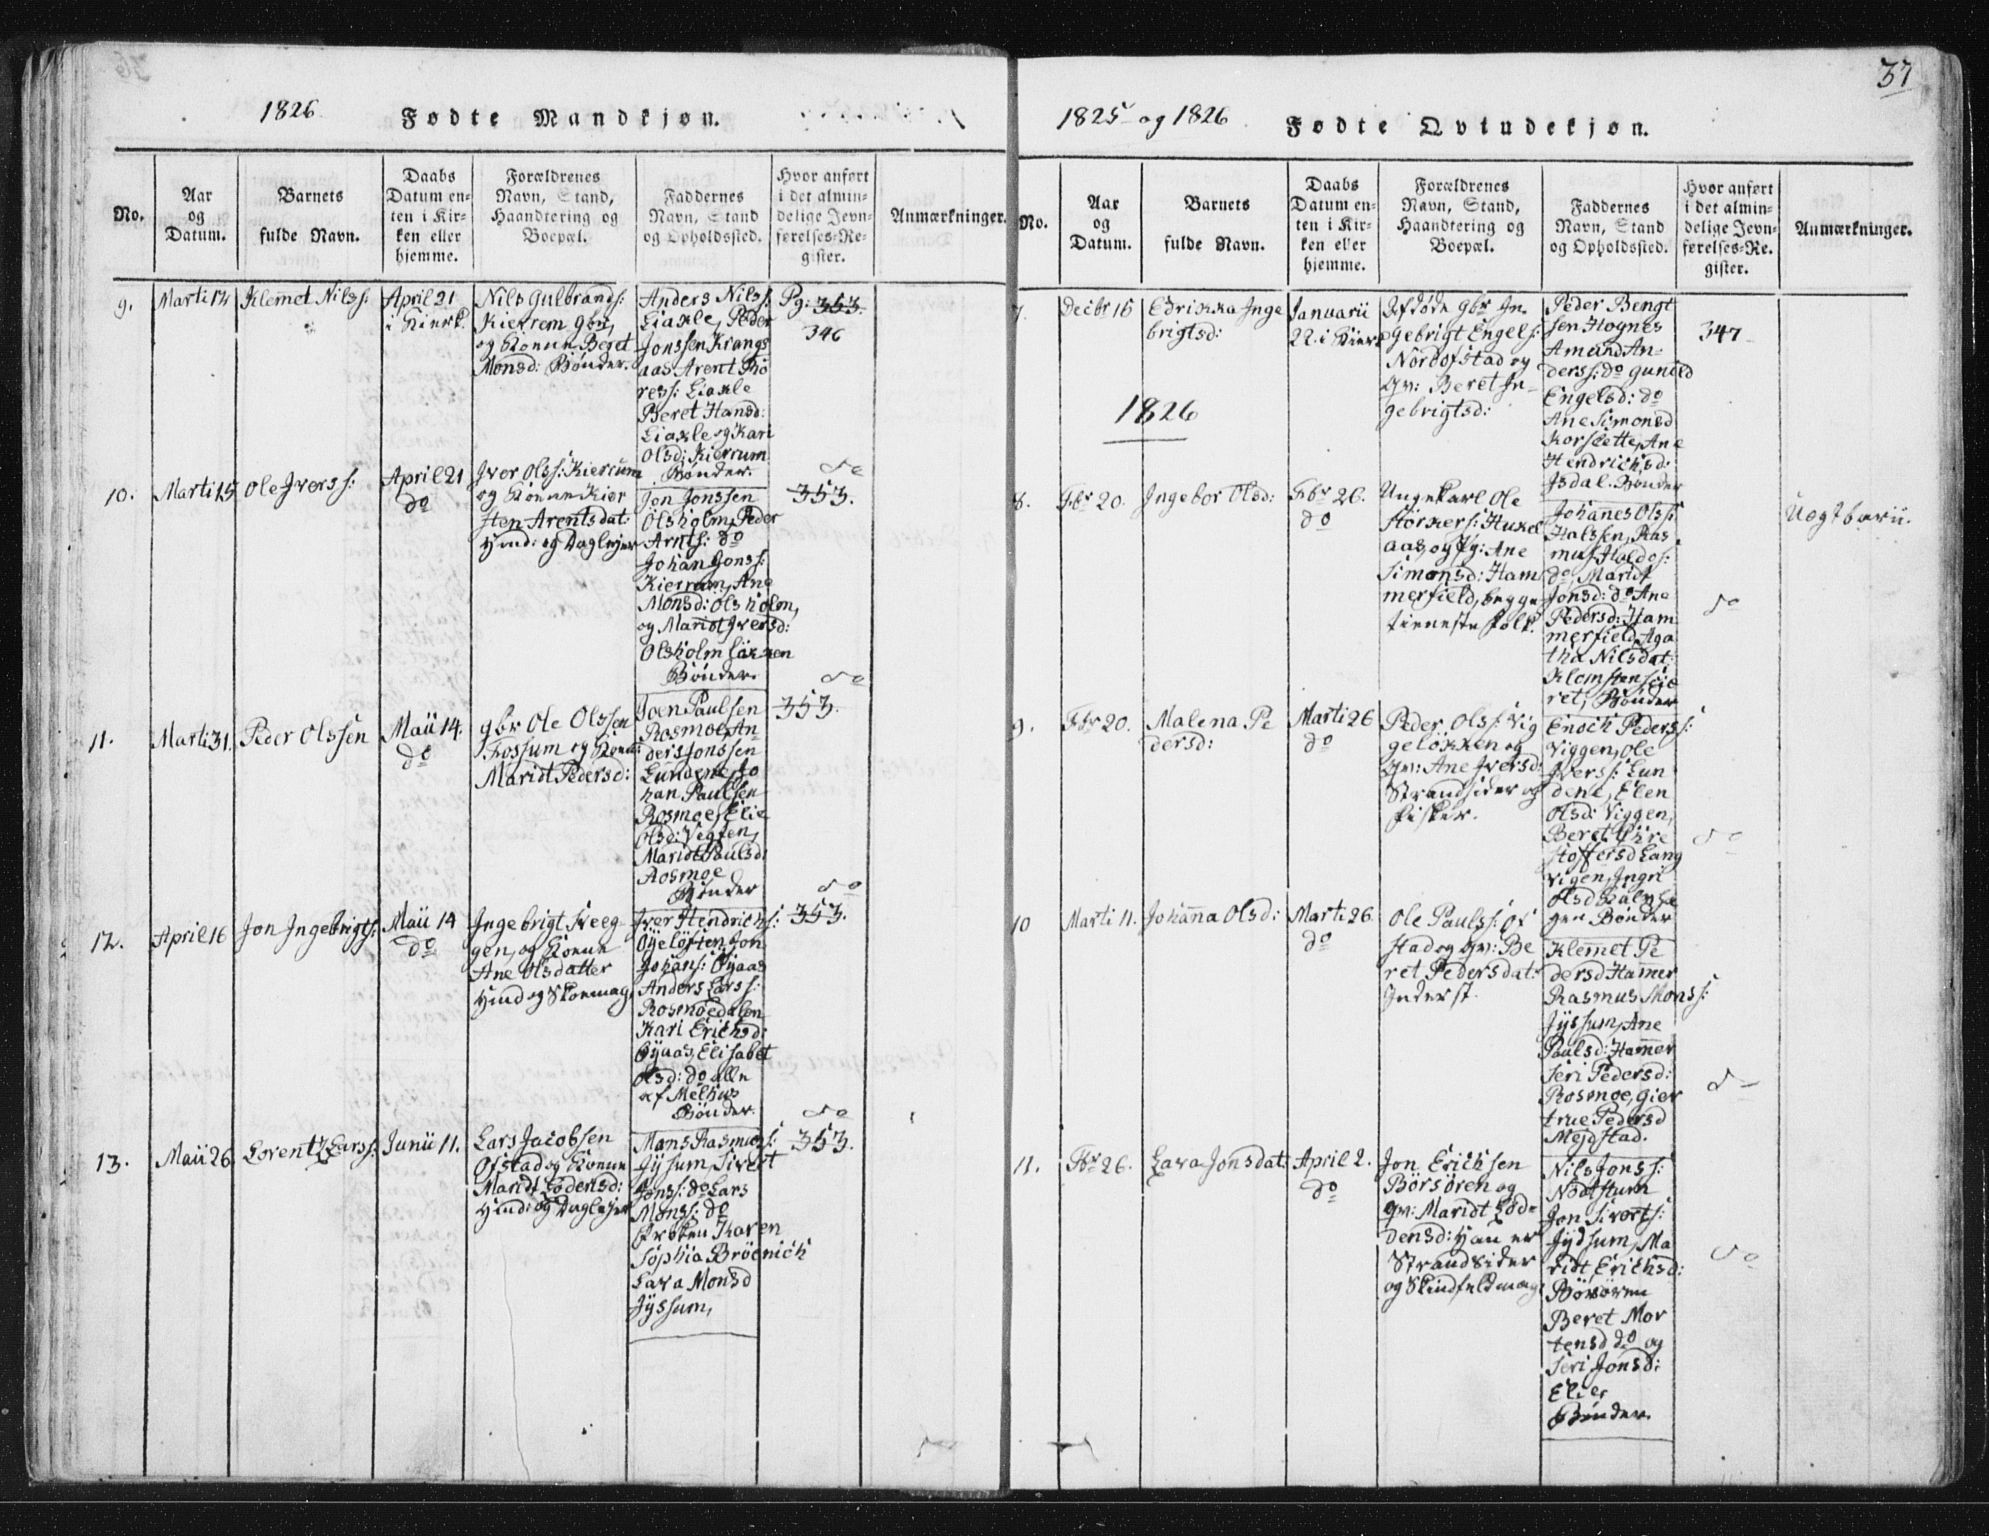 1826
Fødte Mandkjøn.
No.
Aar
og
Datum.
Barnets
fulde Navn.
Daabs
Datum en-
ten i Kir-
ken eller
hjemme.
Forældrenes
Navn, Stand,
Haandtering og
Boepæl.
Faddernes
Navn, Stand
og Opholdssted.
Hvor anført
i det almin-
delige Jevn-
førelses-Re-
gister.
Anmærkninger.
9.
Marti 12
Klemet Nilss:
April 21
i Kierk.
Nils Gulbrands:
Kierrem gbr,
og Konen Beret
Monsd: Bønder.
Anders Nilss:
Liaxle, Peder
Jonssen Krangs
aas Arent To
ress: Liaxle
Beret Hansd:
Liaxle og Kari
Olsd: Kierrum
Bønder.
Pg: 353.
346
10.
Marti 15
Ole Iverss:
April 21
do
Iver Olss: Kierrum
og Konen Kier
sten Arentsdat:
Huusd: og Daglejer
Jon Jonssen
Olsholm, Peder
Arnts: do
Johan Jonss:
Kierrem, Ane
Monsd: Olsholm,
og Maridt Iversd:
Olsholm Løkken
Bønder.
do
353.
11.
Marti 31
Peder Olssen
Maii 14.
do
gbr Ole Olssen
Fossum og Kone:
Maridt Pedersd:
Joen Paulsen
Rosmoe, An-
ders Jonssen
Lundene, Jo
han Paulsen
Rosmoe, Elie
Olsd: Vegten,
Maridt Paulsd:
Rosmoe
Bønder
do
353.
12.
April 16
Jon Ingebrigts:
Maii 14
do
Ingebrigt Sveeg
gen, og Konen
Ane Olsdatter
Huusd og Skoemag:
Iver Hendrichs:
Øyeløften, Jon
Johans: Øyaas
Anders Larss:
Rosmoedalen
Kari Erichsd:
Øyaas, Elisabet
Olsd: do alle
af Melhuus
Bønder.
do
353.
13.
Maii 26
Lorentz Larss:
Junii 11.
Lars Jacobsen
Ofstad og Konen
Maridt Lodensd:
Huusd: og Daglejer
Mans Rasmuss:
Jyssum, Sivert
Jonss: do Lars
Monss: do
Frøken Karen
Sophia Brøenich
Lava Monsd
Jyssum,
do
353.
37
1825 og 1826
Fødte Qvindekjøn.
No.
Aar
og
Datum.
Barnets
fulde Navn.
Daabs
Datum en-
ten i Kir-
ken eller
hjemme.
Forældrenes
Navn, Stand,
Haandtering og
Boepæl.
Faddernes
Navn, Stand
og Opholdssted.
Hvor anført
i det almin-
delige Jevn-
førelses-Re-
gister.
Anmærkninger.
7.
Decbr 15
Edrikka Inge
brigtsd:
Januarii
22. i Kierk
Afdøde gbr In-
gebrigt Engels:
Nordofstad og
Qv: Beret In-
gebrigtsd:
Peder Bengt
sen Høynes
Amund An-
derss: do Gunild
Engelsd: do
Ane Simonsd
Korslette, Ane
Hendrichsd:
Isdal. Bønder
347
1826
8.
Fbr 20.
Ingebor Olsd:
Fbr 26.
do
Ungekarl Ole
Størkers: Huxel
aas, og Pg: Ane
Simonsd: Ham
merfield, begge
tieneste folk.
Johannes Olss:
Halssen, Ras
mus Haldos:
do, Maridt
Jonsd: do Ane
Pedersd: Ham
merfield, Aga
tha Nilsdat:
Klemsten seie
ret, Bønder
do
Uegtbarn.
9.
Fbr 20.
Malena Pe
dersd:
Marti 26
do
Peder Olss: Vig
geløkken og
Qv: Ane Iversd:
Strandsider og
fisker.
Enoch Peders:
Viggen, Ole
Iverss: Lun
dene, Elen
Olsd: Viggen,
Beret Chre
stoffersd Lang
vigen, Ingri
Olsd
gen Bønder
do
10
Marti 11.
Johanna Olsd:
Marti 26.
do
Ole Paulss: Of
stad og Qv: Be
ret Pedersdat:
Inderst.
Klemet Pe
dersd Hammer
Rasmus Monss:
Jyssum, Ane
Paulsd: Hammer
Seri Pedersd:
Rosmoe, Gier
true Pedersd
Mejdstad.
do
11.
Fbr 26.
Lava Jonsdat
April 2.
do
Jon Erichsen
Børsøren og
Qv: Maridt Lod-
densd: Han er
Strandsider
og Skindfeldmag:
Nils Jonss:
Nodtstum
Jon Siverts:
Jydsum, Ma
ridt Erichsd:
Børsøren
Beret Mor
tensd do og
Seri Jonsd:
Elier
Bønder.
do